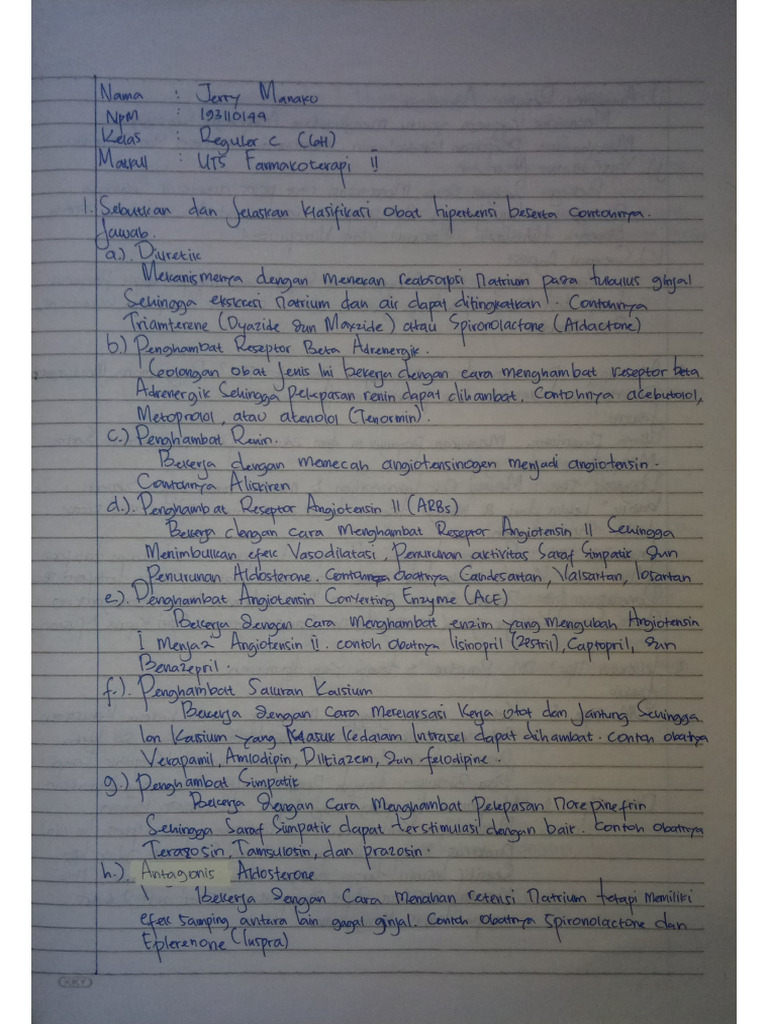 Nama : Jerry Manako
NPM : 193110149
Kelas : Reguler C (6H)
Matkul : UTS Farmakoterapi II
1. Sebutkan dan Jelaskan klasifikasi obat hipertensi beserta contohnya.
Jawab.
a.) Diuretik
Mekanismenya dengan menekan reabsorpsi Natrium pada tubulus ginjal
Sehingga ekskresi natrium dan air dapat ditingkatkan. Contohnya
Triamterene (Dyazide dan Maxzide) atau Spironolactone (Aldactone)
b.) Penghambat Reseptor Beta Adrenergik.
Golongan obat jenis Ini bekerja dengan cara menghambat reseptor beta
Adrenergik Sehingga pelepasan renin dapat dihambat. Contohnya acebutolol,
Metoprolol, atau atenolol (Tenormin).
c.) Penghambat Renin.
Bekerja dengan memecah angiotensinogen menjadi angiotensin.
Contohnya Aliskiren
d.). Penghambat Reseptor Angiotensin II (ARBs)
Bekerja dengan cara Menghambat Reseptor Angiotensin II Sehingga
Menimbulkan efek Vasodilatasi, Penurunan aktivitas Saraf Simpatik dan
Penurunan Aldosterone. Contohnya Obatnya Candesartan, Valsartan, losartan
e.). Penghambat Angiotensin Converting Enzyme (ACE)
Bekerja dengan cara menghambat enzim yang mengubah Angiotensin
I menjadi Angiotensin II. contoh obatnya lisinopril (Zestril), Captopril, dan
Benazepril.
f.). Penghambat Saluran Kalsium
Bekerja dengan cara merelaksasi kerja otot dan Jantung Sehingga
Ion Kalsium yang Masuk kedalam Intrasel dapat dihambat. contoh obatnya
Verapamil, Amlodipin, Diltiazem, dan felodipine.
g.) Penghambat Simpatik
Bekerja dengan Cara Menghambat Pelepasan Norepinefrin
Sehingga Saraf Simpatik dapat terstimulasi dengan baik. Contoh Obatnya
Terazosin, Tamsulosin, dan prazosin.
h.). Antagonis Aldosterone
Bekerja dengan Cara Menahan retensi Natrium tetapi Memiliki
efek samping antara lain gagal ginjal. Contoh obatnya spironolactone dan
Eplerenone (Inspra)